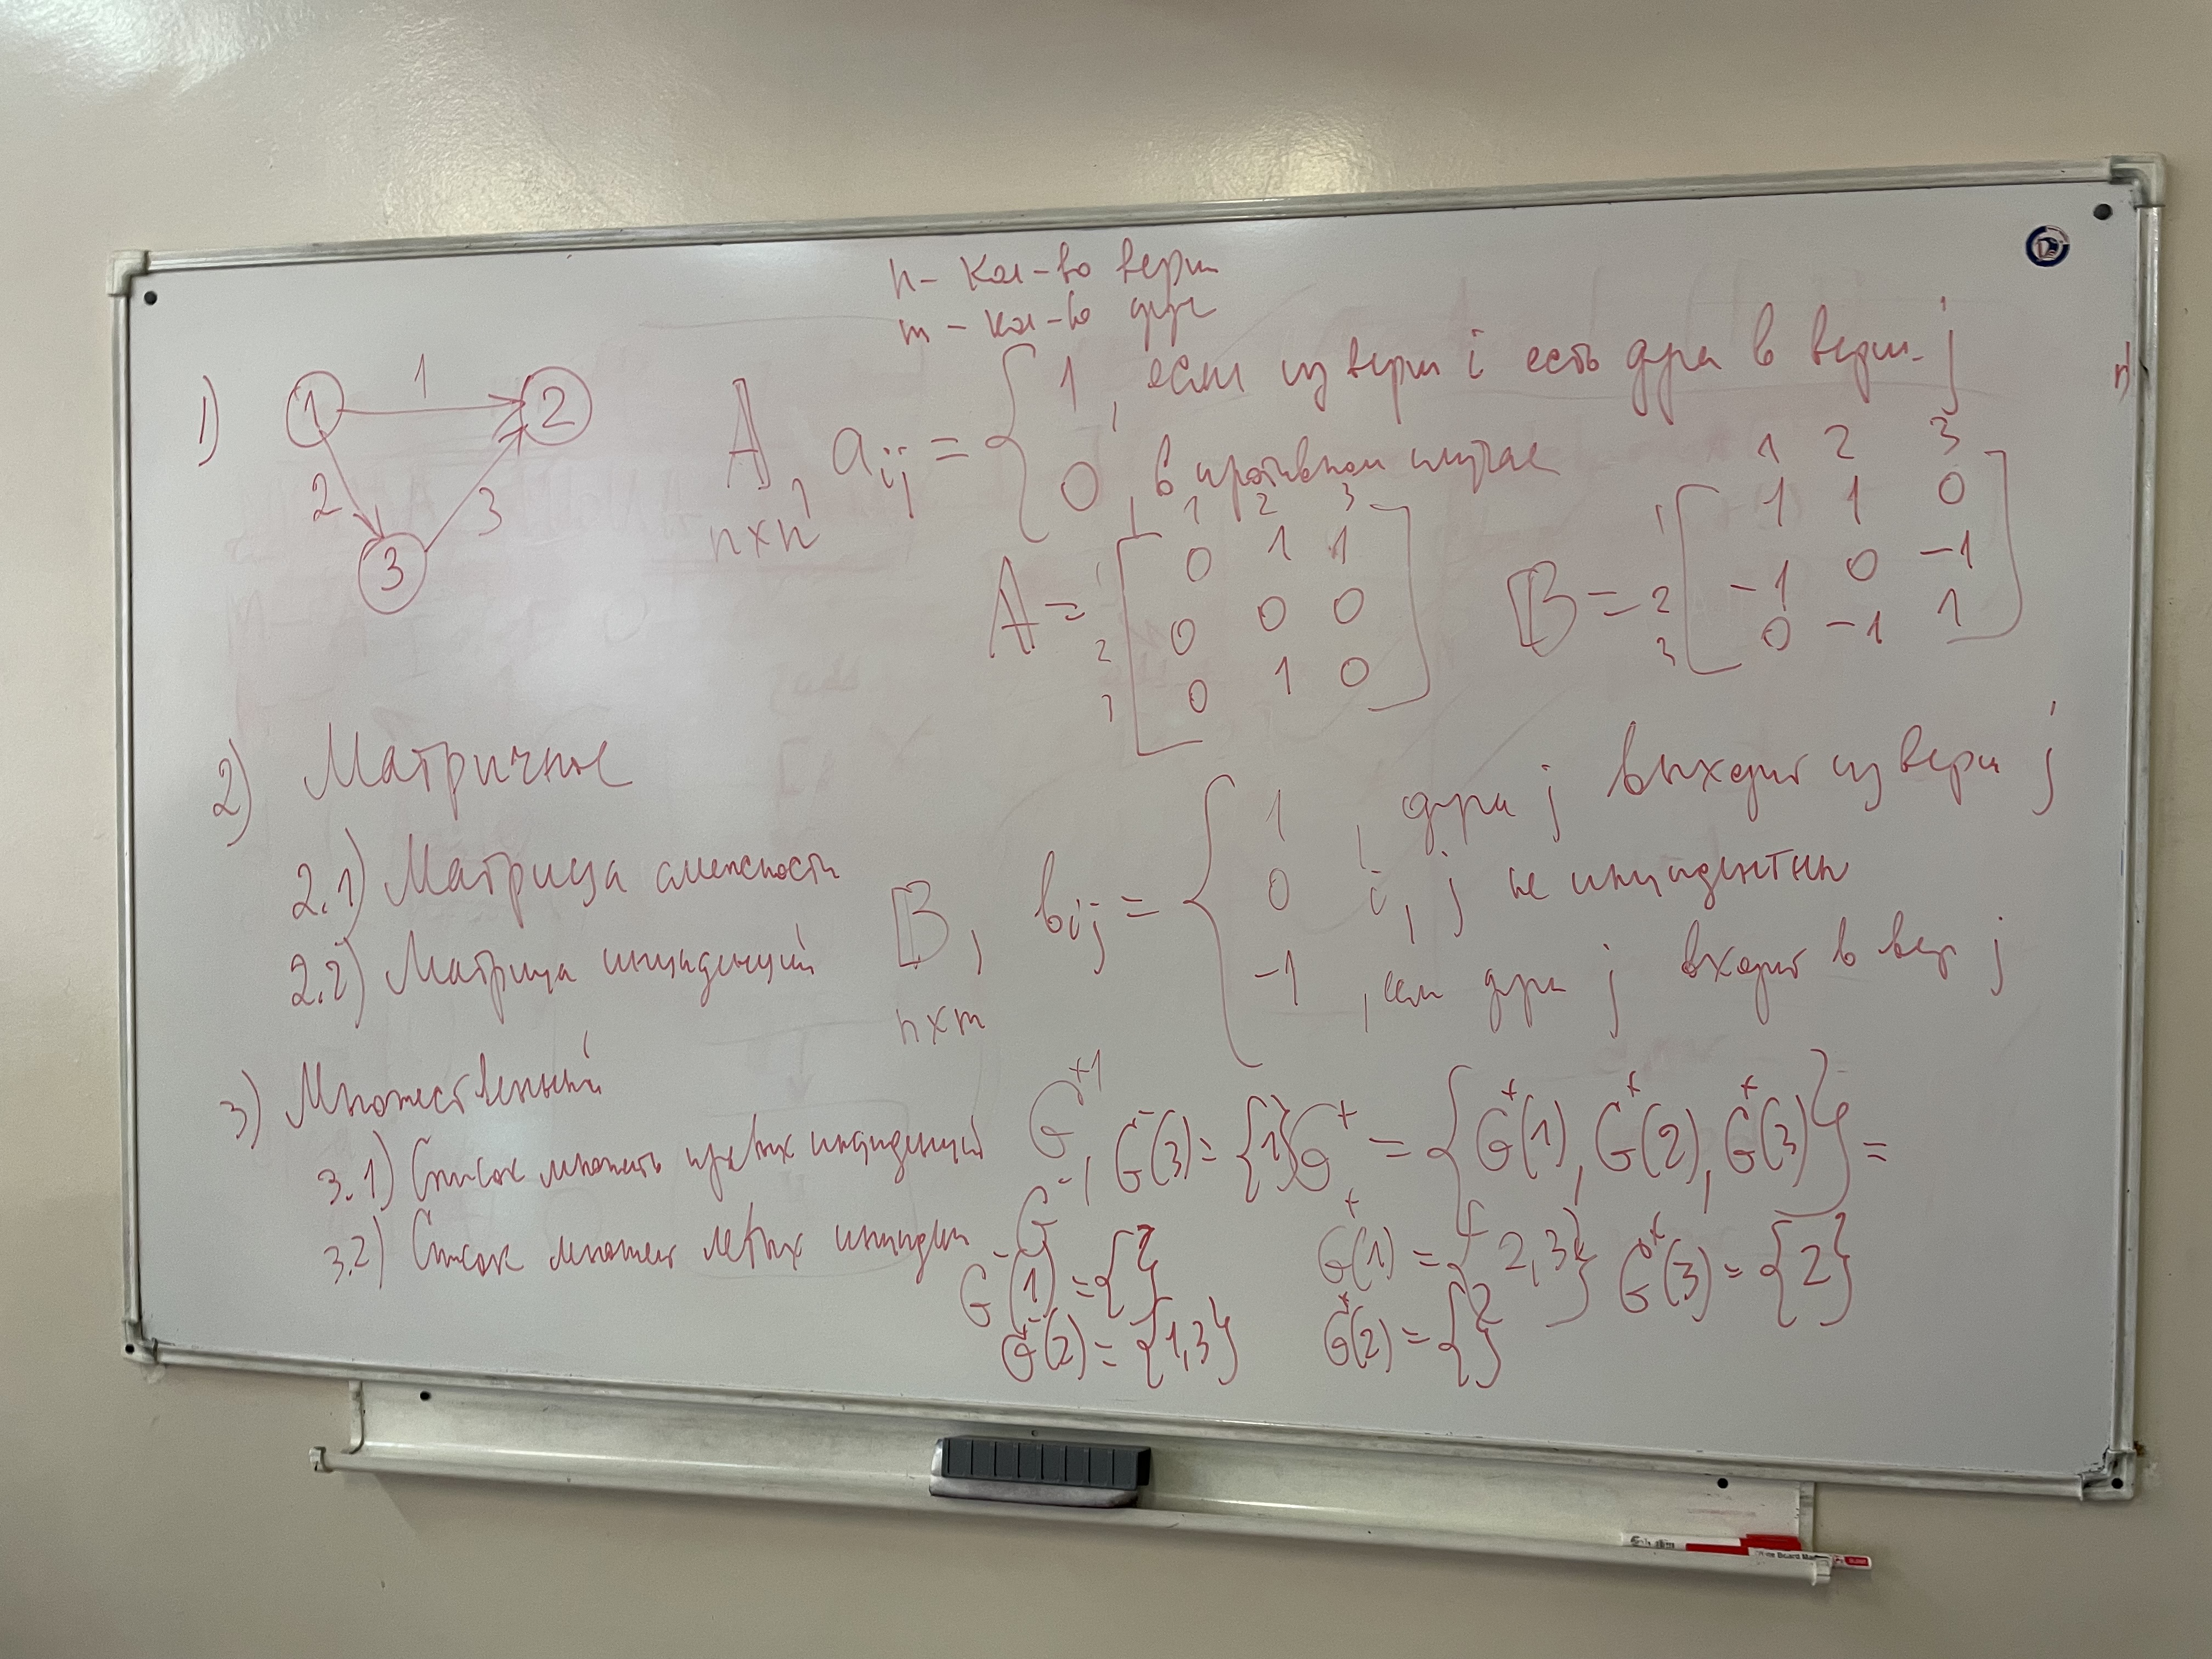 n - кол-во верш
m - кол-во дуг
1) 1 1 2 2 3 3
A, aij = { 1, если из верш i есть дуга в верш. j
0, в противном случае
n×n
1 2 3
A = 1 [ 0 1 1
2 0 0 0
3 0 1 0 ]
1 2 3
B = 1 [ 1 1 0
2 -1 0 -1
3 0 -1 1 ]
2) Матричное
2.1) Матрица смежности
2.2) Матрица инциденций B, bij = { 1, дуга j выходит из верш j
0 i, j не инцидентны
-1, если дуга j входит в вер j
n×m
3) Множественный
3.1) Список множеств правых инциденций G+1, G-(3) = {1} G+ = {G+(1), G+(2), G+(3)} =
3.2) Список множеств левых инциден G-1
G-(1) = {} G+(1) = {2,3} G+(3) = {2}
G-(2) = {1,3} G+(2) = {}